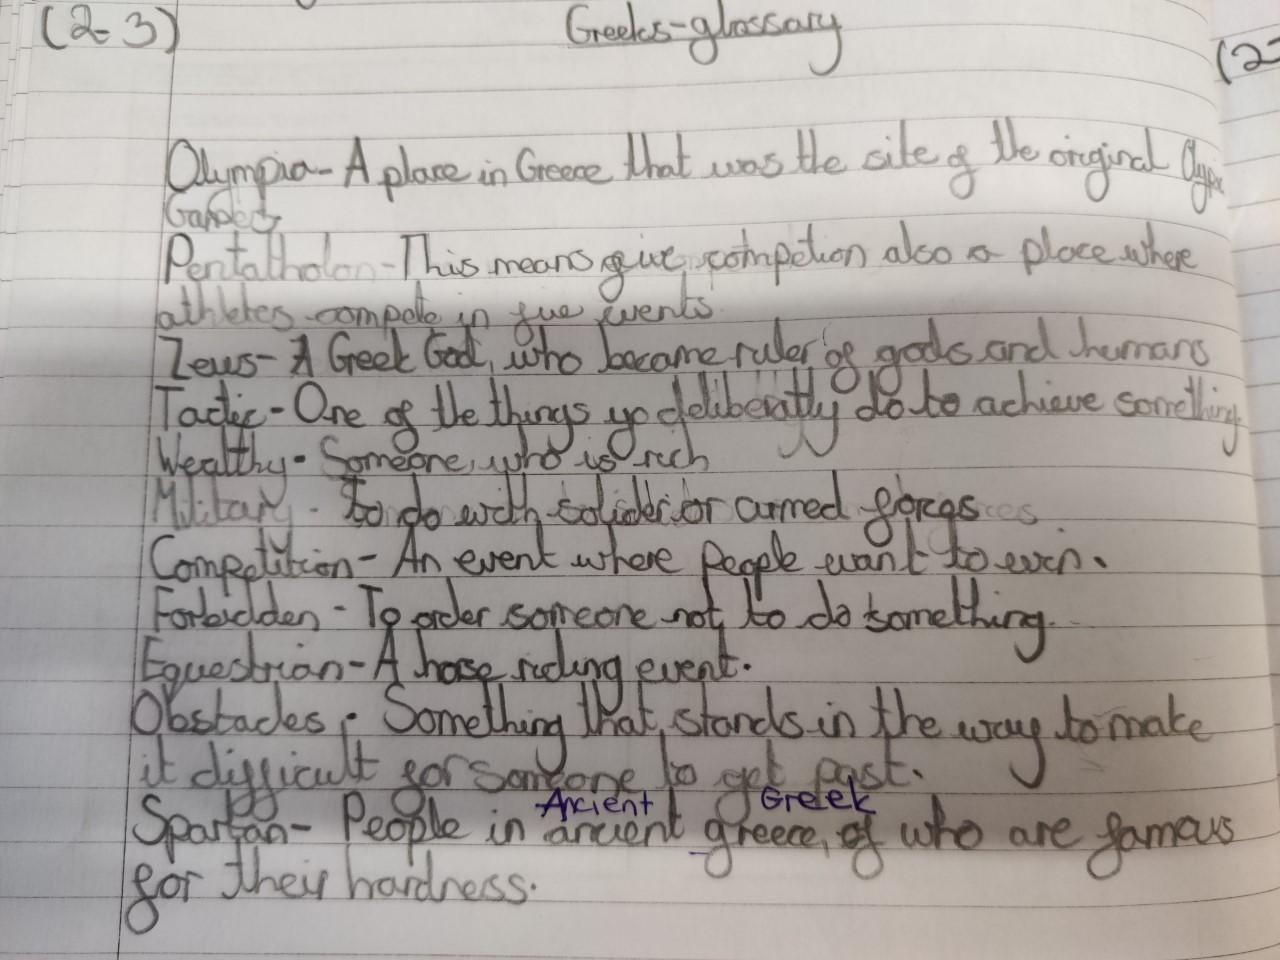 (2-3)
Greeks-glossary
(2-
Olympia- A place in Greece that was the site of the original
Games
Pentatholon-This means five compection also a place where
athletes compete in five events
Zeus- A Greek God, who became ruler of gods and humans
Tactic- One of the things yo deliberatly do to achieve something
Wealthy- Someone, who is rich
Military- To do with or armed forces
Competition- An event where people want to win.
Forbidden- To order someone not to do something.
Equestrian- A hose riding event.
Obstacles- Something that stands in the way to make
it difficult for someone to get past.
Ancient Greek
Spartan- People in ancient greece, of who are famous
for their hardness.